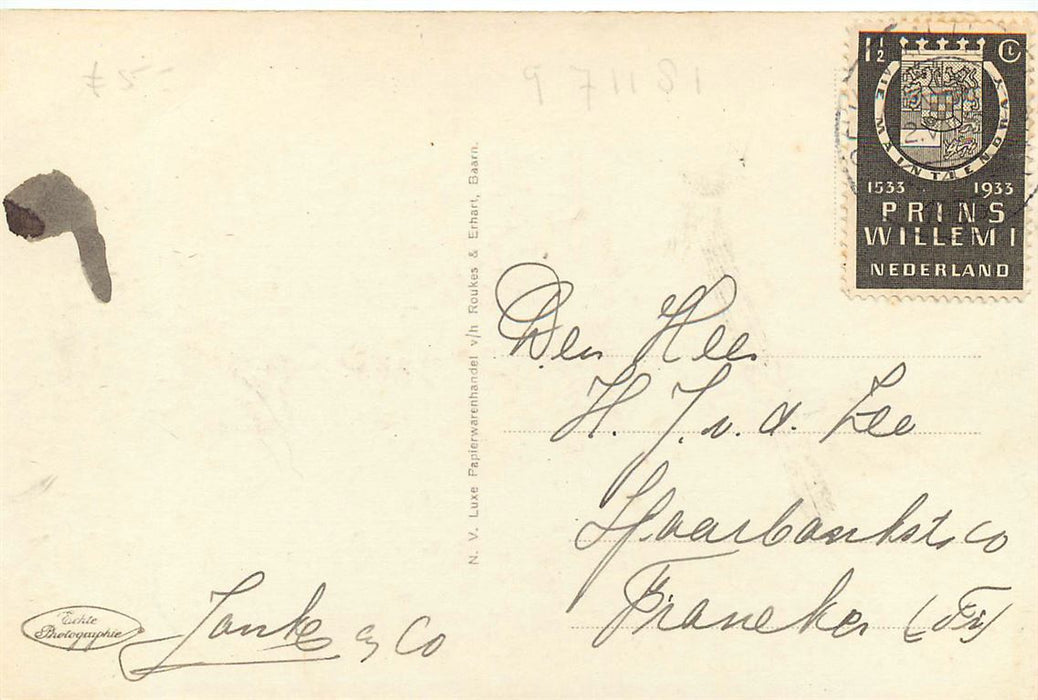 181179
1½ C
JE MAINTIENDRAY
1533 1933
PRINS
WILLEM I
NEDERLAND
N. V. Luxe Papierwarenhandel v/h Roukes & Erhart, Baarn.
Den Heer
H. J. v. d. Zee
Spaarbankstr
Franeker (Fr)
Echte
Photographie
& Co